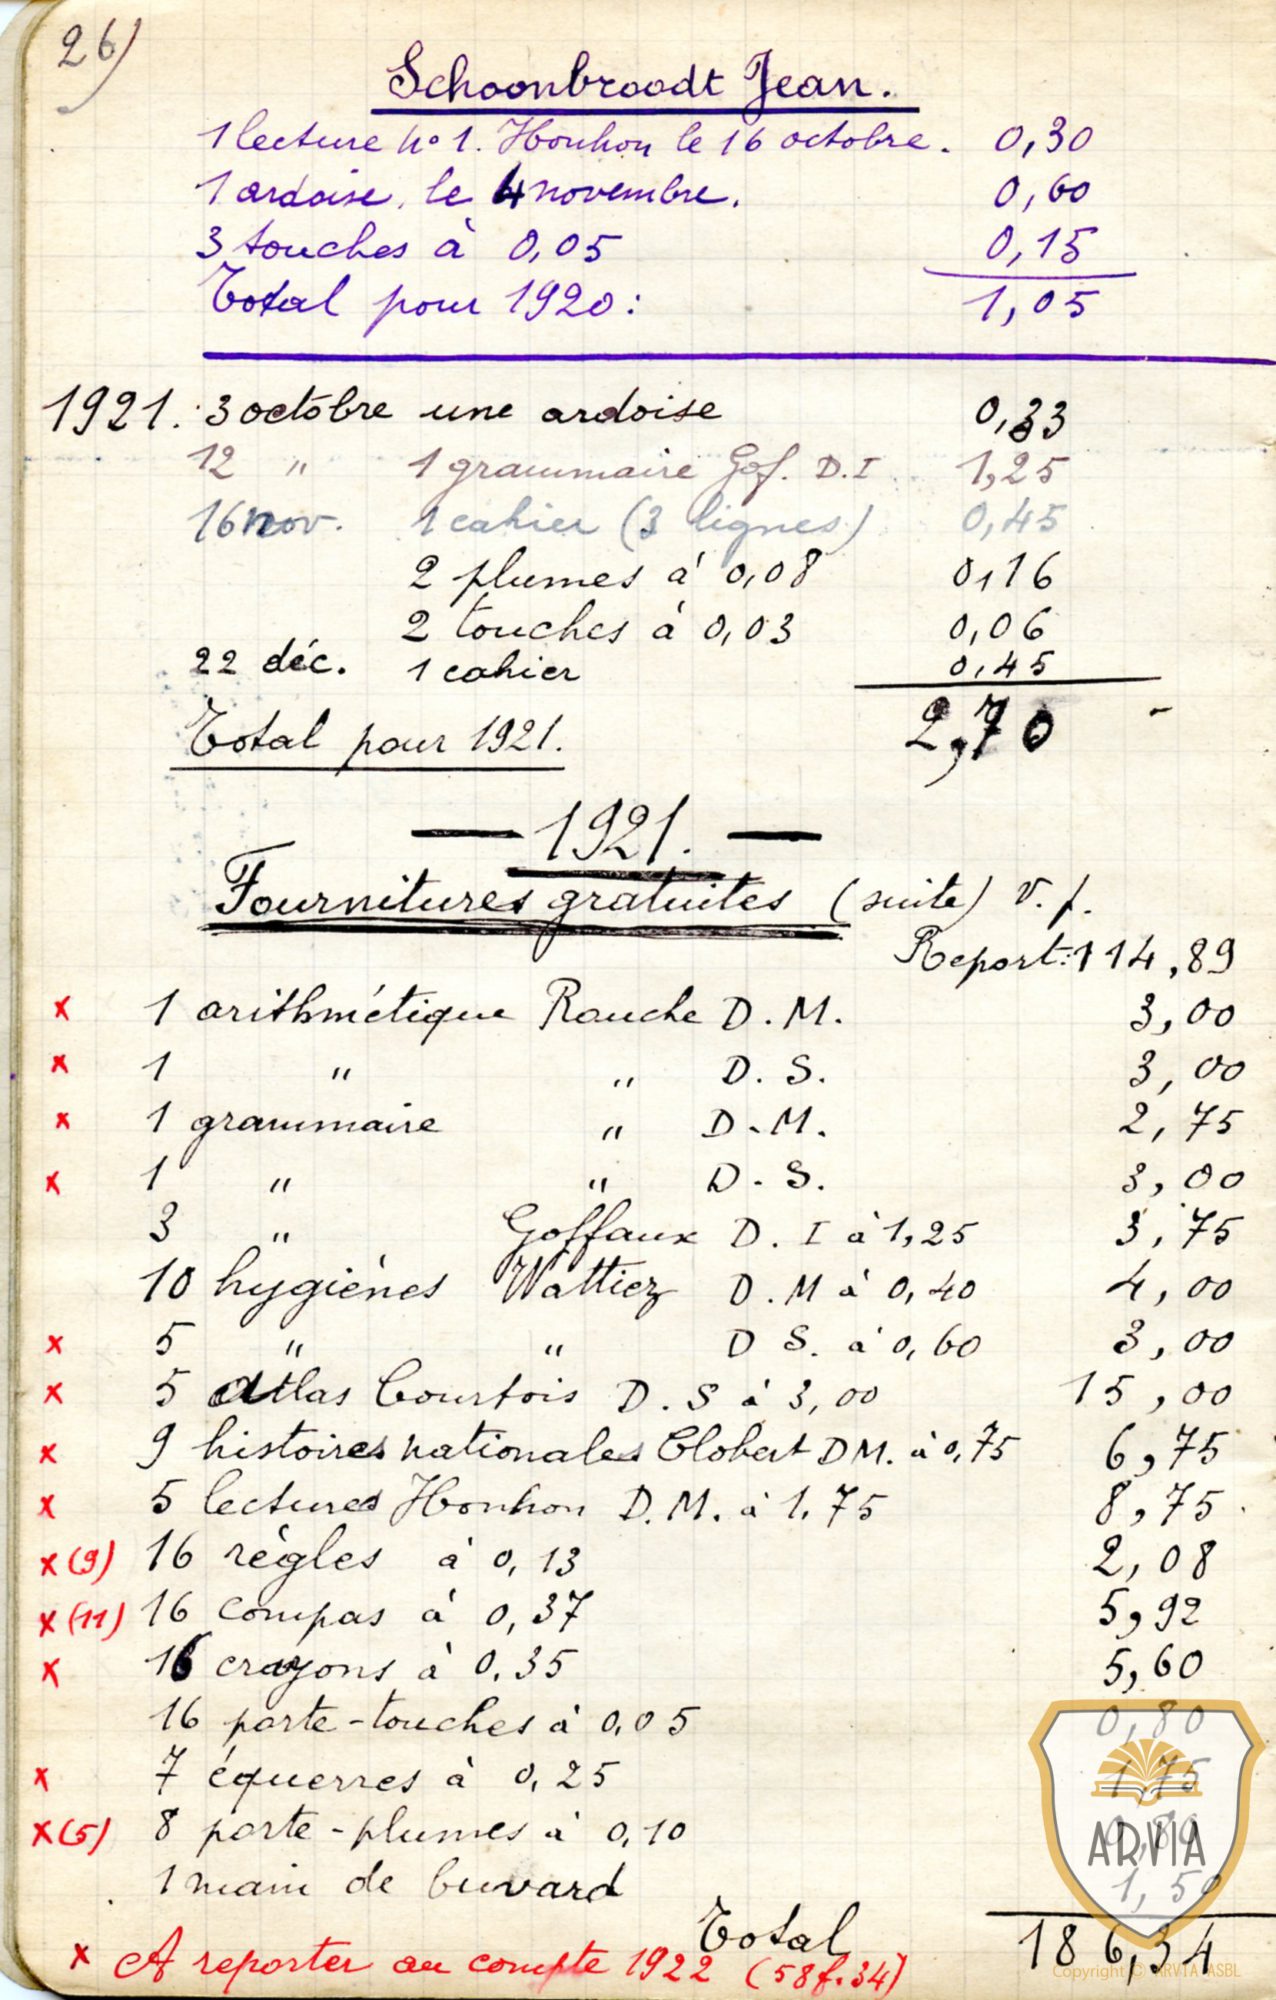 26)
Schoonbroodt Jean.
1 lecture n° 1. Honhon le 16 octobre. 0,30
1 ardoise, le 4 novembre. 0,60
3 touches à 0,05 0,15
Total pour 1920: 1,05
1921. 3 octobre une ardoise 0,33
12 " 1 grammaire Gof. D.I 1,25
16 nov. 1 cahier (3 lignes) 0,45
2 plumes à 0,08 0,16
2 touches à 0,03 0,06
22 déc. 1 cahier 0,45
Total pour 1921. 2,70 -
— 1921. —
Fournitures gratuites (suite) v. f.
Report: 114,89
x 1 arithmétique Rouche D. M. 3,00
x 1 " " D. S. 3,00
x 1 grammaire " D. M. 2,75
x 1 " " D. S. 3,00
3 " Goffaux D. I à 1,25 3,75
10 hygiènes Wattiez D. M à 0,40 4,00
x 5 " " D S. à 0,60 3,00
x 5 atlas Courtois D. S à 3,00 15,00
x 9 histoires nationales Clobert DM. à 0,75 6,75
x 5 lectures Honhon D.M. à 1,75 8,75
x (9) 16 règles à 0,13 2,08
x (11) 16 compas à 0,37 5,92
x 16 crayons à 0,35 5,60
16 porte-touches à 0,05 0,80
x 7 équerres à 0,25 1,75
x (5) 8 porte-plumes à 0,10 0,80
1 main de buvard 1,50
Total 186,34
x A reporter au compte 1922 (58 f. 34)
ARVIA
Copyright © ARVIA ASBL